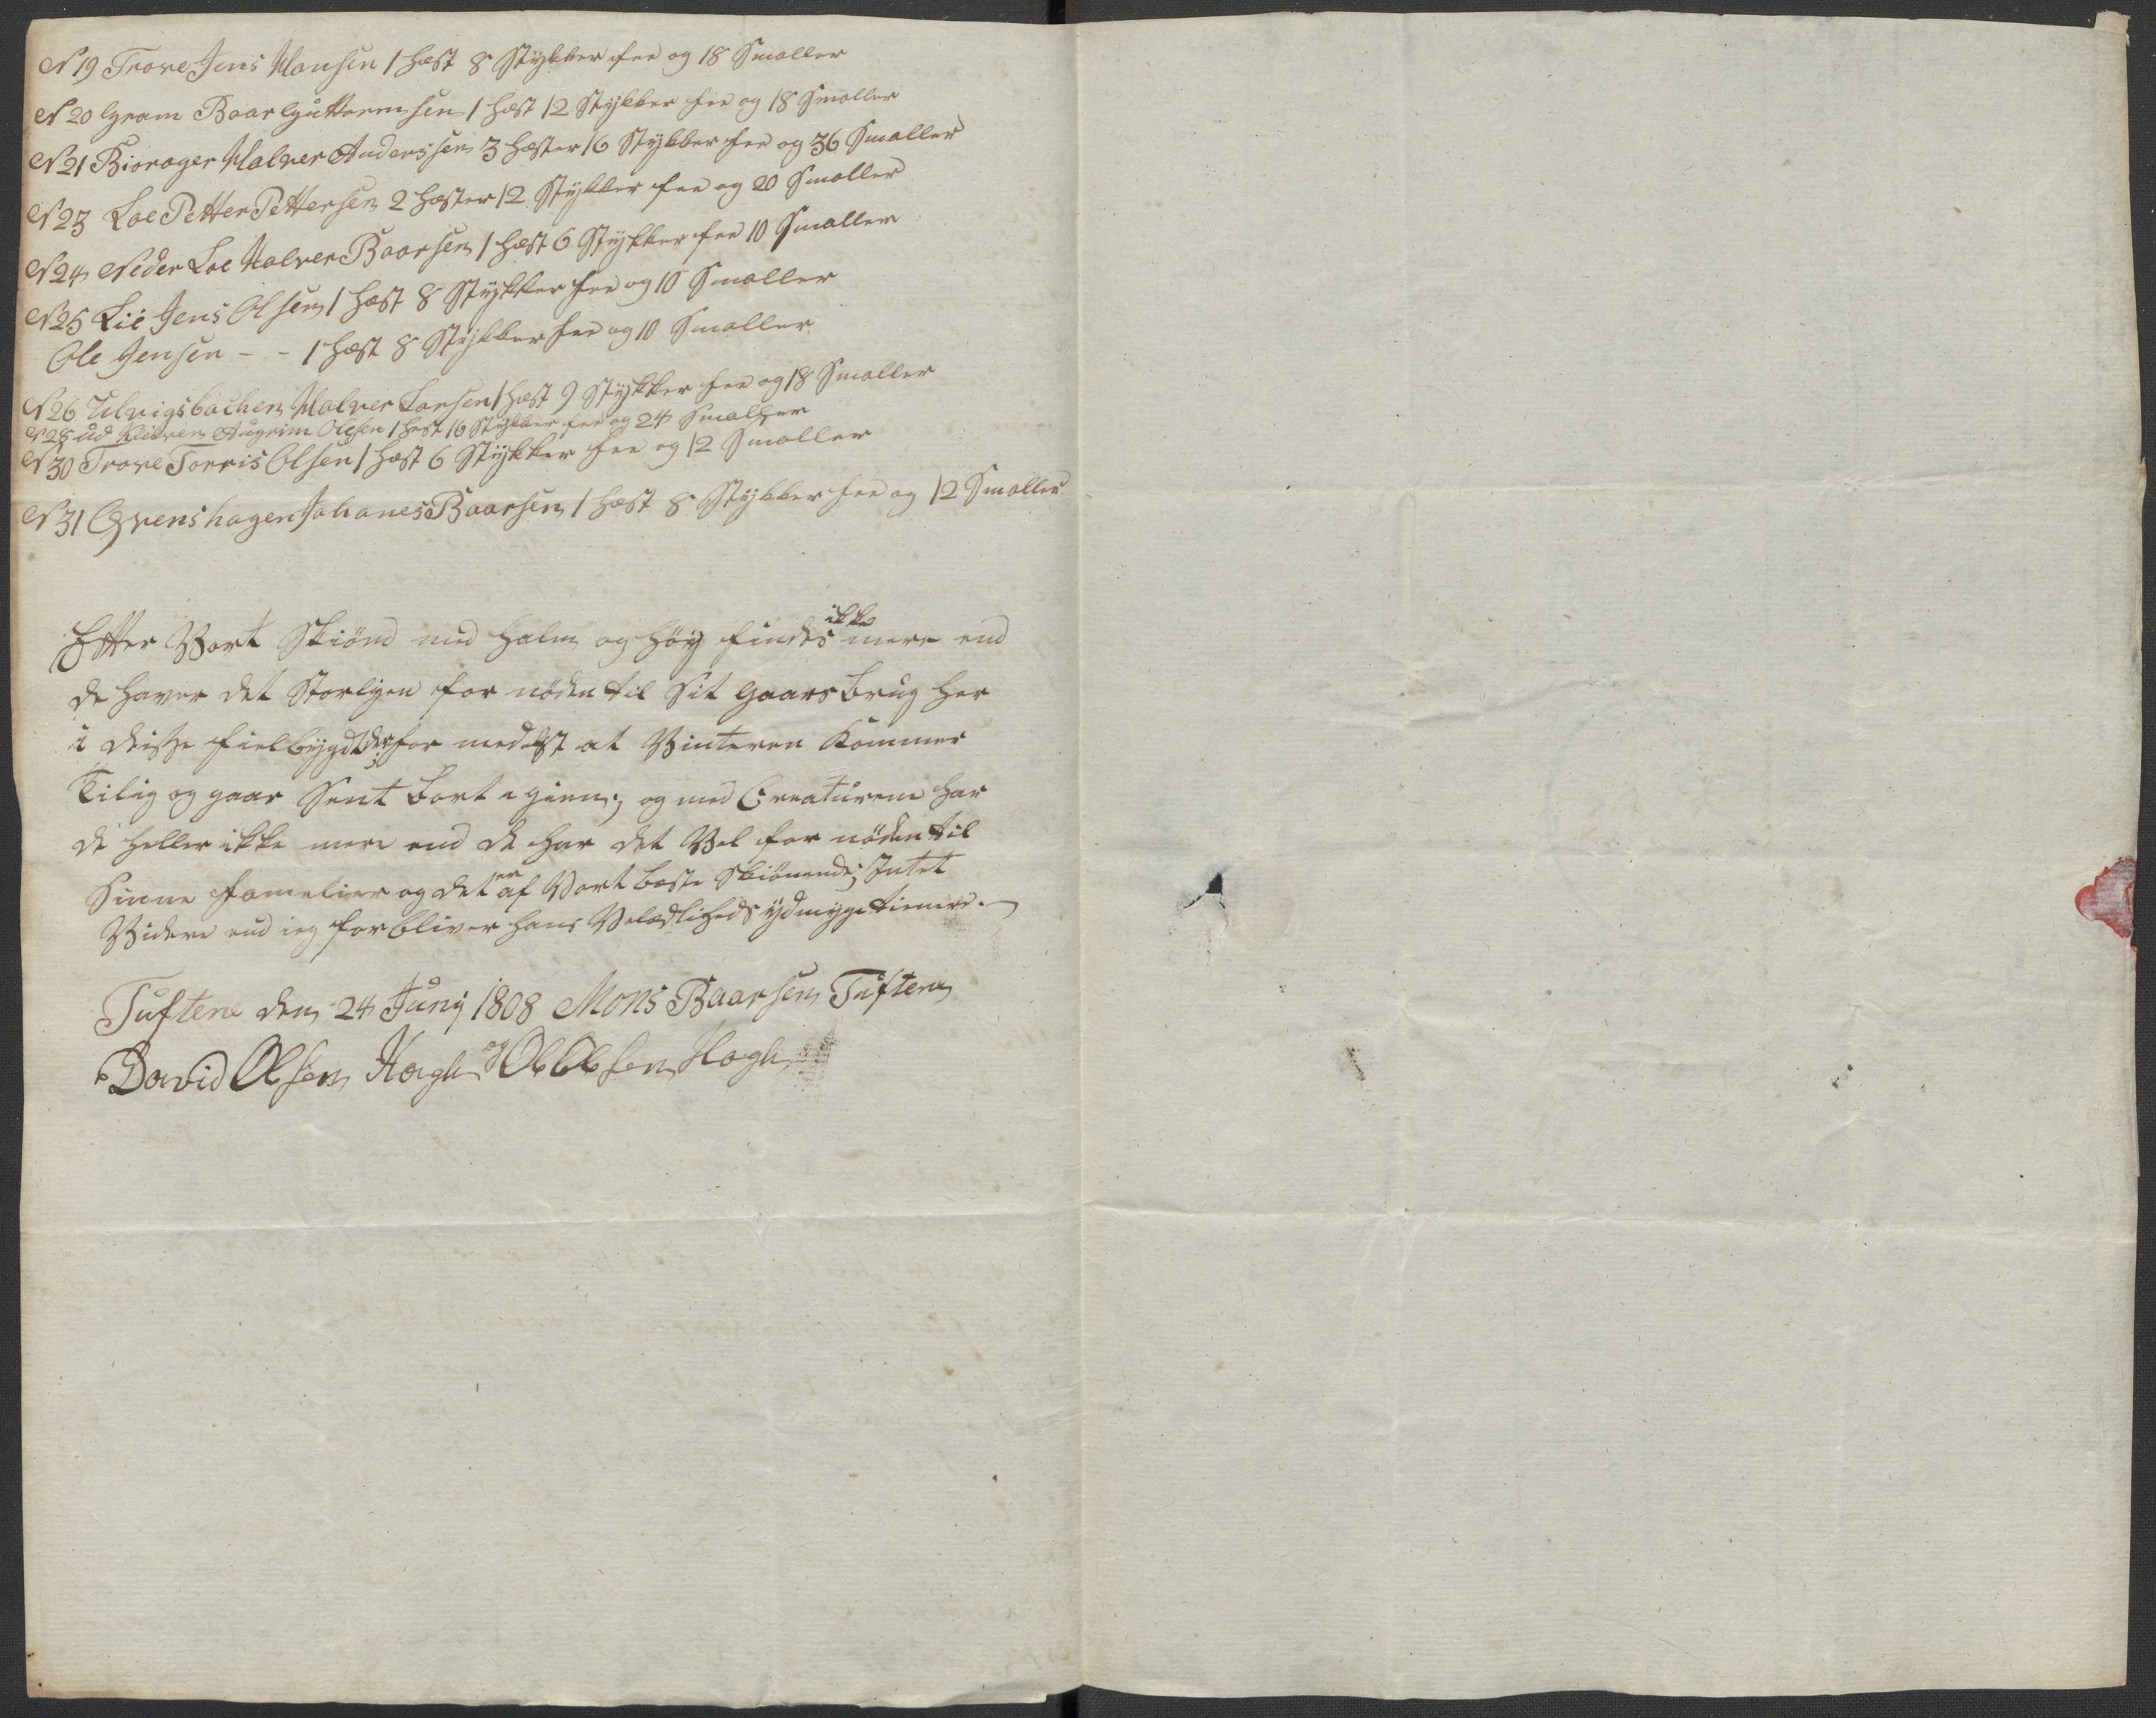 N 19 Trove Jens Monsen 1 hæst 8 Stykker fee og 18 Smaller
N 20 Gram Baar Guttormsen 1 hæst 12 Stykker fee og 18 Smaller
N 21 Biorager Halver Anderssen 3 hæster 16 Stykker fee og 36 Smaller
N 23 Loe Petter Pettersen 2 hæster 12 Stykker fee og 20 Smaller
N 24 Neder Loe Halver Baarsen 1 hæst 6 Stykker fee 10 Smaller
N 25 Lie Jens Olsen 1 hæst 8 Stykker fee og 10 Smaller
Ole Jensen - - 1 hæst 8 Stykker fee og 10 Smaller
N 26 Ulvigsbachen Halver Larsen 1 hæst 9 Stykker fee og 18 Smaller
N 28 ud Augrim Olesen 1 hæst 16 Stykker fee og 24 Smaller
N 30 Trove Torris Olsen 1 hæst 6 Stykker fee og 12 Smaller
N 31 Grenshagen Johanes Baarsen 1 hæst 8 Stykker fee og 12 Smaller
Efter Vort Skiønd med halm og høy findes ikke mere end
de haver det Storligen for nøden til Sit gaars brug her
i disse fielbygder for medelst at Vinteren Kommer
Tilig og gaar Sent bort igien; og med Creaturene har
de heller ikke mere end de har det Vel for nøden til
Sinne familier og det er af Vort beste Skiønende; Intet
Videre end ieg forbliver hans Velædligheds ydmyge tienere.
Tuftene den 24 Juny 1808 Mons Baarsen Tuftene
David Olsen Hogh Ole Olsen Hogh